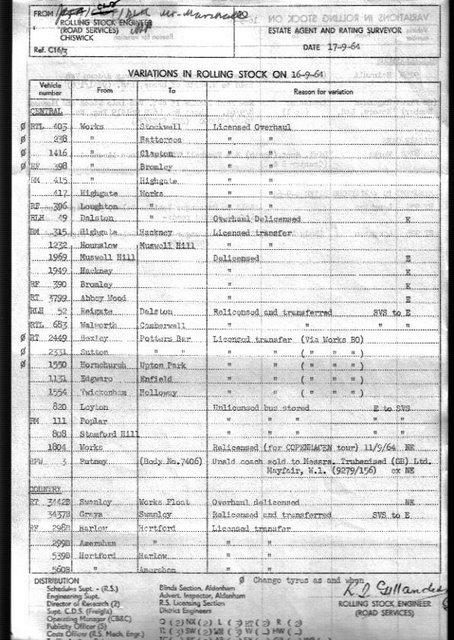 FROM
ROLLING STOCK ENGINEER
(ROAD SERVICES)
CHISWICK
Ref. C16/
ESTATE AGENT AND RATING SURVEYOR
DATE 17-9-64
VARIATIONS IN ROLLING STOCK ON 16-9-64
Vehicle number From To Reason for variation
CENTRAL
Ø RTL 403 Works Stockwell Licensed Overhaul
Ø 238 " Battersea " "
Ø 1416 " Clapton " "
Ø RF 398 " Bromley " "
RM 415 " Highgate " "
417 Highgate Works " "
RF 396 Loughton " " "
RLH 49 Dalston " Overhaul Delicensed E
RM 315 Highgate Hackney Licensed transfer
1232 Hounslow Muswell Hill " "
1969 Muswell Hill Delicensed E
1949 Hackney " E
RF 390 Bromley " E
RT 3799 Abbey Wood " E
RLH 52 Reigate Dalston Relicensed and transferred SVS to E
RTL 683 Walworth Camberwell " " " "
Ø RT 2449 Bexley Potters Bar Licensed transfer (Via Works BO)
Ø 2331 Sutton " " " ( " " " )
Ø 1550 Hornchurch Upton Park " " ( " " " )
1131 Edgware Enfield " " ( " " " )
1554 Twickenham Holloway " " ( " " " )
820 Leyton Unlicensed bus stored E to SVS
RM 111 Poplar " " " "
808 Stamford Hill " " " "
1804 Works Relicensed (for COPENHAGEN tour) 11/9/64 NE
RFW 3 Putney (Body No.7406) Unald coach sold to Messrs. Trubenised (GB) Ltd.
Mayfair, W.1. (9279/156) ex NE
COUNTRY
RT 3442B Swanley Works Float Overhaul delicensed NE
3437B Grays Swanley Relicensed and transferred SVS to E
RF 298B Harlow Hertford Licensed transfer
299B Amersham " " "
539B Hertford Harlow " "
560B " Amersham " "
Ø Change tyres as and when
DISTRIBUTION
Schedules Supt. - (R.S.)
Engineering Supt.
Director of Research (2)
Supt. C.D.S. (Freight)
Operating Manager (CB&C)
Publicity Officer (2)
Costs Officer (R.S. Mach. Engr.)
Blinds Section, Aldenham
Advert. Inspector, Aldenham
R.S. Licensing Section
District Engineers
ROLLING STOCK ENGINEER
(ROAD SERVICES)